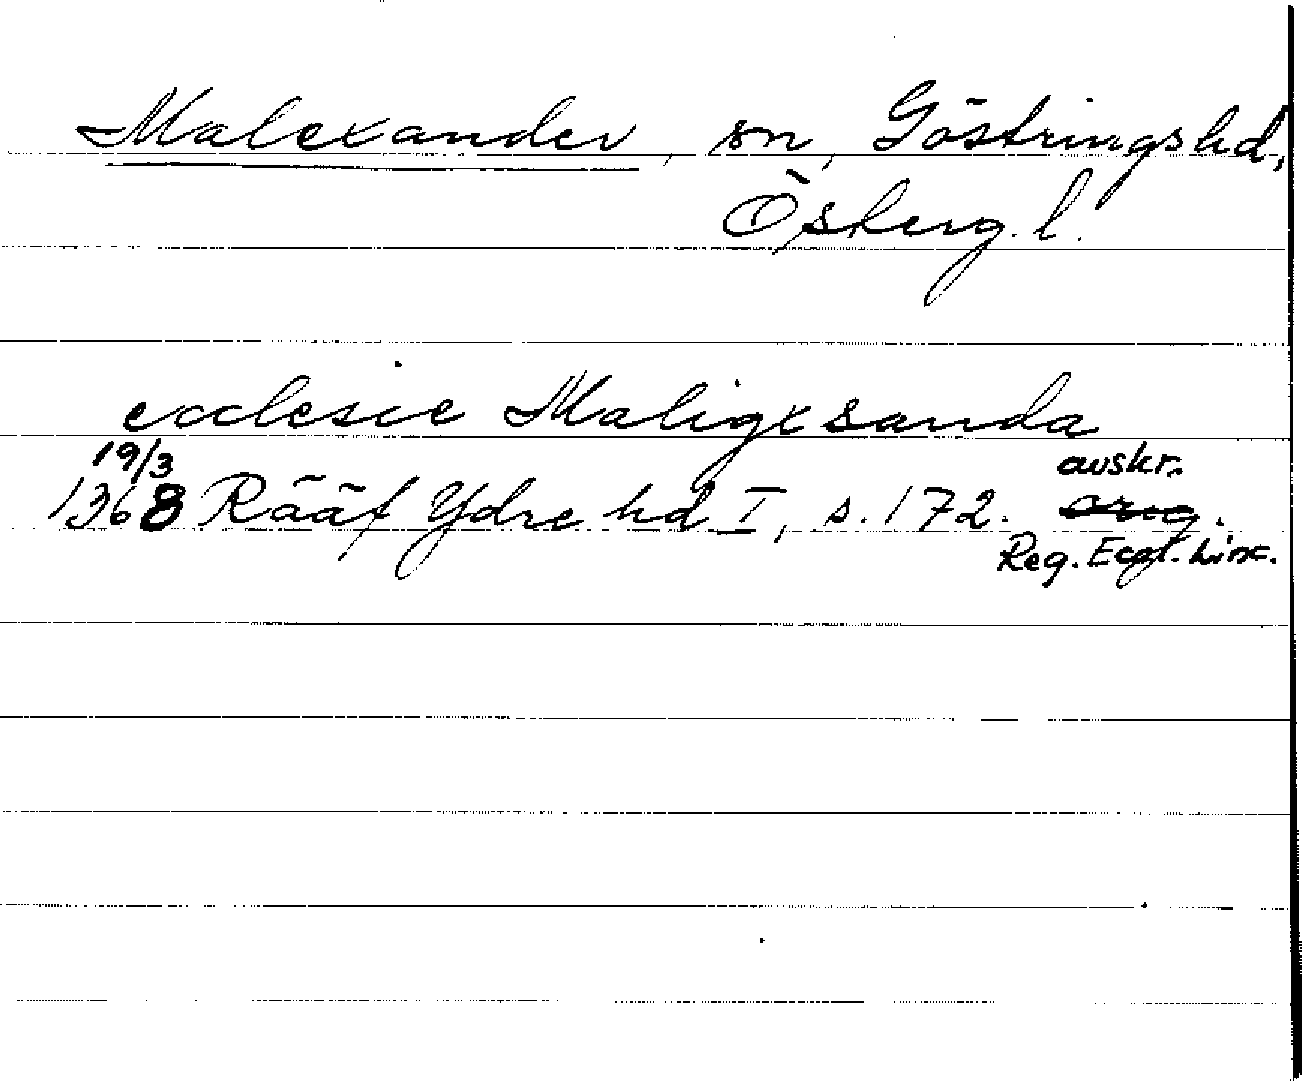 Malexander, sn, Göstringshd,
Österg. l.
ecclesie Maligxsanda
19/3 avskr.
1368 Rääf Ydre hd I, s. 172. orig.
Reg. Eccl. Linc.